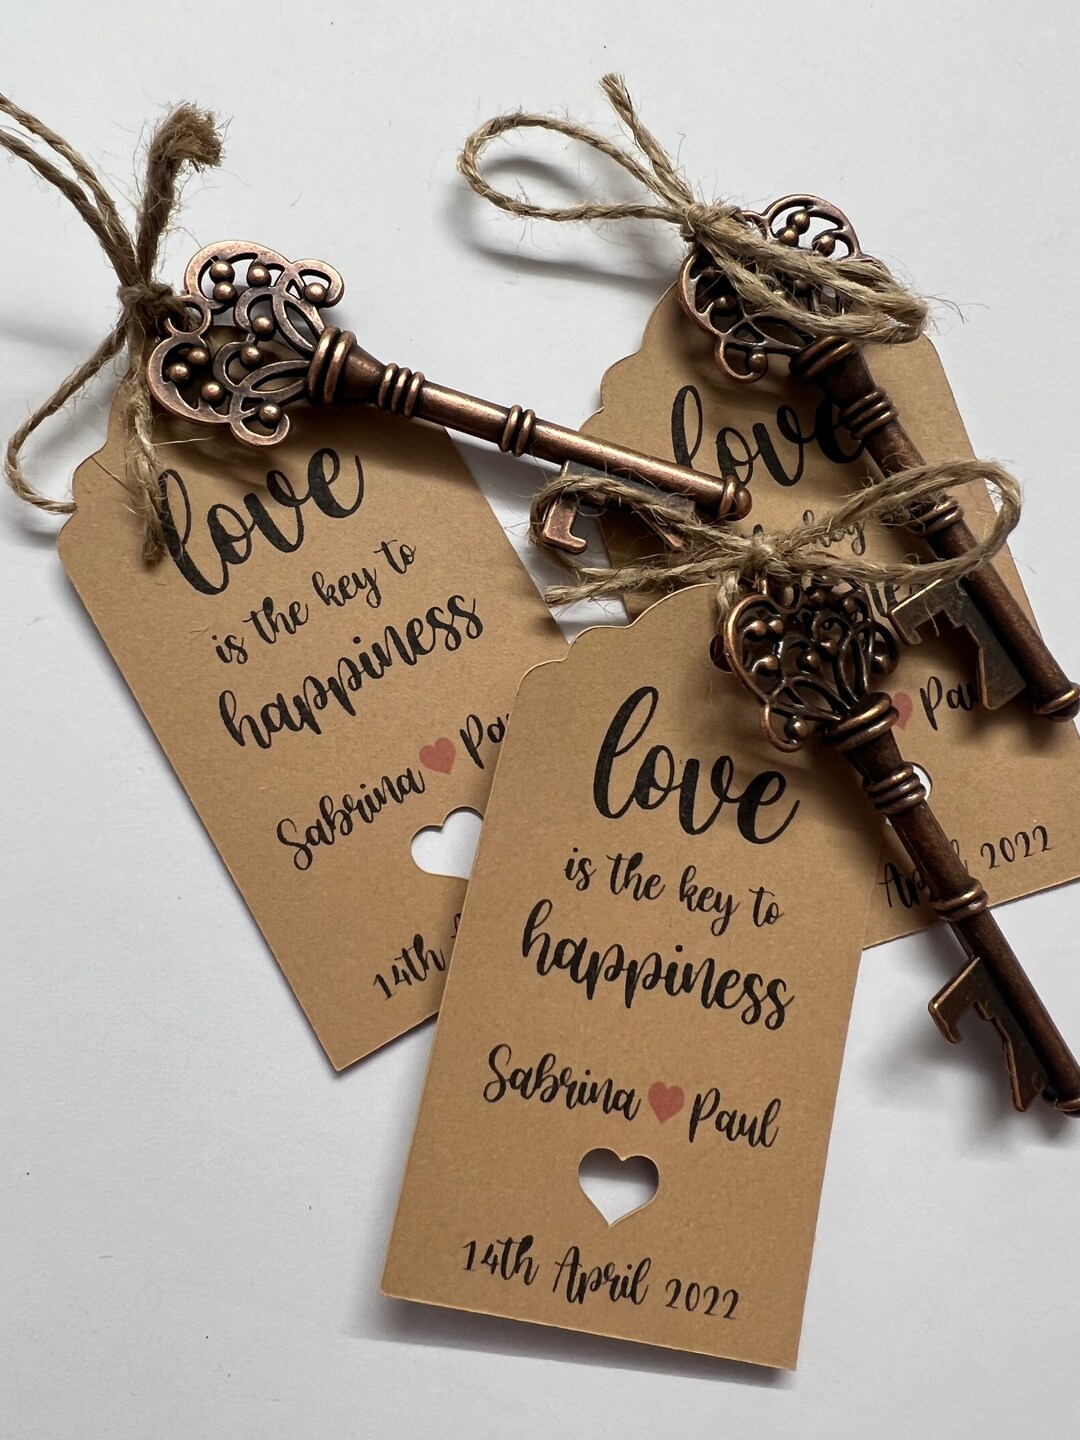 love
is the key to
happiness
Sabrina
14th
love
Pau
April 2022
love
is the key to
happiness
Sabrina Paul
14th April 2022